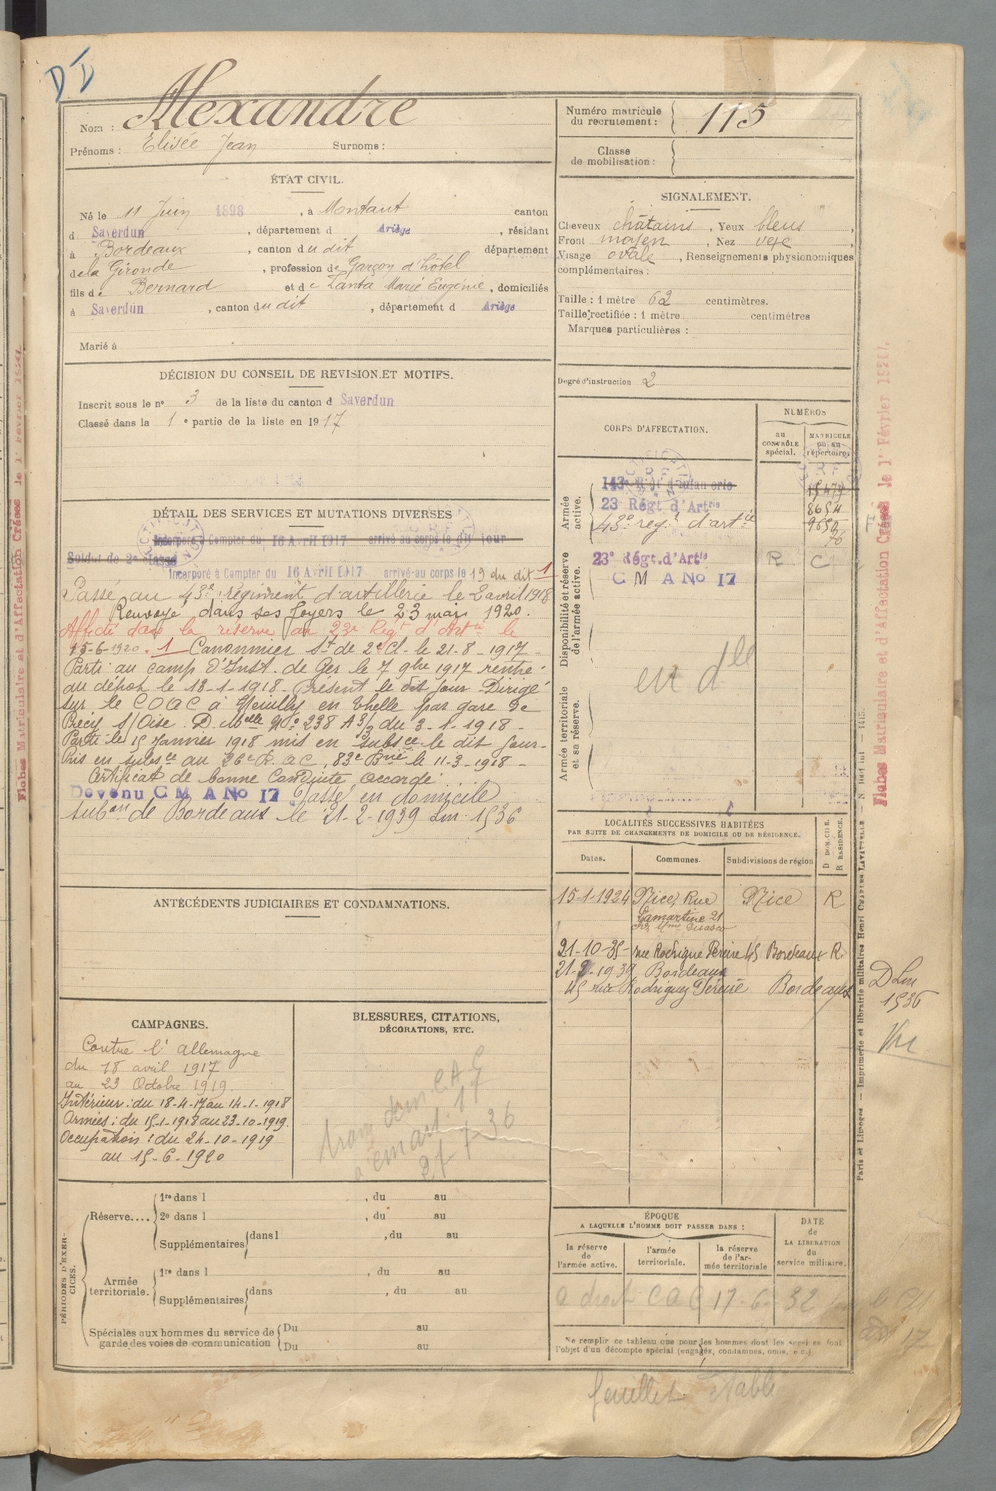 D I
Nom : Alexandre
Prénoms : Elisée Jean Surnoms :
Numéro matricule
du recrutement : 115
Classe
de mobilisation :
ÉTAT CIVIL.
Né le 11 Juin 1898, à Montaut canton
d Saverdun, département d Ariège, résidant
à Bordeaux, canton du dit département
de la Gironde, profession de Garçon d'hôtel
fils de Bernard et de Zanta Marie Eugénie, domiciliés
à Saverdun, canton du dit, département d Ariège
Marié à
SIGNALEMENT.
Cheveux châtains, Yeux bleus,
Front moyen, Nez vexe,
Visage ovale, Renseignements physionomiques
complémentaires :
Taille : 1 mètre 62 centimètres.
Taille rectifiée : 1 mètre centimètres
Marques particulières :
Degré d'instruction 2
DÉCISION DU CONSEIL DE REVISION ET MOTIFS.
Inscrit sous le n° 3 de la liste du canton d Saverdun
Classé dans la 1e partie de la liste en 1917
DÉTAIL DES SERVICES ET MUTATIONS DIVERSES
Incorporé à Compter du 16 Avril 1917 arrivé au corps le dit jour
Soldat de 2e classe
Incorporé à Compter du 16 Avril 1917 arrivé au corps le 19 du dit 1
Passé au 43e régiment d'artillerie le 2 avril 1918
Renvoyé dans ses foyers le 23 mai 1920.
Affecté dans la réserve au 23e Régt d'Artie le
15-6-1920. 1 Canonnier St de 2e Cl. le 21-8-1917-
Parti au camp d'Inst. de Ger le 7 9bre 1917 rentré
au dépôt le 18-1-1918- Présent le dit jour Dirigé
sur le COAC à Neuilly en Thelle par gare de
Précy S/Oise. D. Mlle No 238 A3/3 du 3-1-1918-
Parti le 15 Janvier 1918 mis en subsce le dit jour-
Pris en subsce au 26e R.A.C, 83e Brie le 11-3-1918-
Certificat de bonne Conduite accordé
Devenu C M A No 17 Passé en domicile
subon de Bordeaux le 21-2-1939 Lm 1536
CORPS D'AFFECTATION.
NUMÉROS
au
CONTRÔLE
spécial.
MATRICULE
ou au
répertoire
Armée
active.
143e Rgt d'Infanterie
23 Régt d'Artie 8654
43e régt d'artie 9650
Disponibilité et réserve
de l'armée active.
23e Régt. d'Artie R C
C M A No 17
en dlle
Armée territoriale
et sa réserve.
LOCALITÉS SUCCESSIVES HABITÉES
PAR SUITE DE CHANGEMENTS DE DOMICILE OU DE RÉSIDENCE.
Dates. Communes. Subdivisions de région
D DOMICILE.
R RÉSIDENCE.
15-1-1924 Nice, Rue Nice R
Lamartine 21
21-10-35- rue Rodrigue Péreire 45 Bordeaux R.
21-2-1939 Bordeaux
45 rue Rodrigues Péreire Bordeaux
D Lm
1536
ANTÉCÉDENTS JUDICIAIRES ET CONDAMNATIONS.
CAMPAGNES.
Contre l'Allemagne
du 18 avril 1917
au 23 Octobre 1919
Intérieur : du 18-4-17 au 14-1-1918
Armées : du 15-1-1918 au 23-10-1919.
Occupation : du 24-10-1919
au 15-6-1920
BLESSURES, CITATIONS,
DÉCORATIONS, ETC.
PÉRIODES D'EXERCICES.
Réserve.... 1re dans l , du au
2e dans l , du au
Supplémentaires dans l , du au
Armée
territoriale. 1re dans l , du au
Supplémentaires dans , du au
Spéciales aux hommes du service de
garde des voies de communication Du au
Du au
ÉPOQUE
A LAQUELLE L'HOMME DOIT PASSER DANS :
la réserve
de l'armée active.
l'armée
territoriale.
la réserve
de l'armée territoriale
DATE
de
LA LIBÉRATION
du
service militaire.
Ne remplir ce tableau que pour les hommes dont les services font
l'objet d'un décompte spécial (engagés, condamnés, omis, etc.).
feuillet établi
Fiches Matriculaire et d'Affectation Créées le 1er Février 1926.
Fiches Matriculaire et d'Affectation Créées le 1er Février 1926.
Paris et Limoges — Imprimerie et librairie militaires Henri CHARLES-LAVAUZELLE